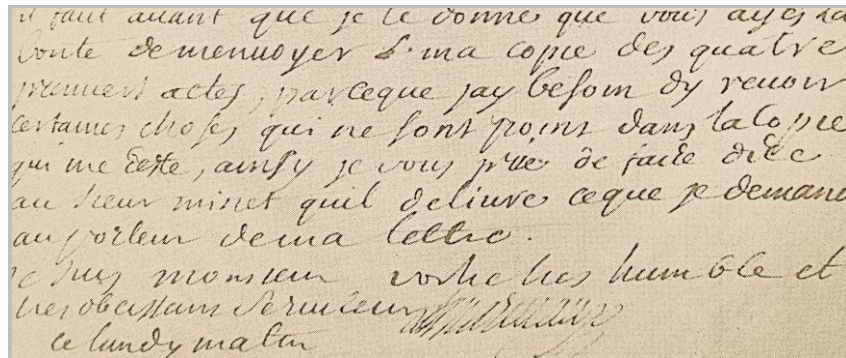 il faut auant que je le donne que vous ayés la
bonte demenuoyer ma copie des quatre
premiers actes, parceque jay besoin dy reuoir
certaines choses qui ne sont point dans la copie
qui me reste, ainsy je vous prie de faire dire
au sieur minet quil deliure ceque je demand
au porteur dema lettre.
je suis monsieur vostre tres humble et
tres obeissant seruiteur
ce lundy matin